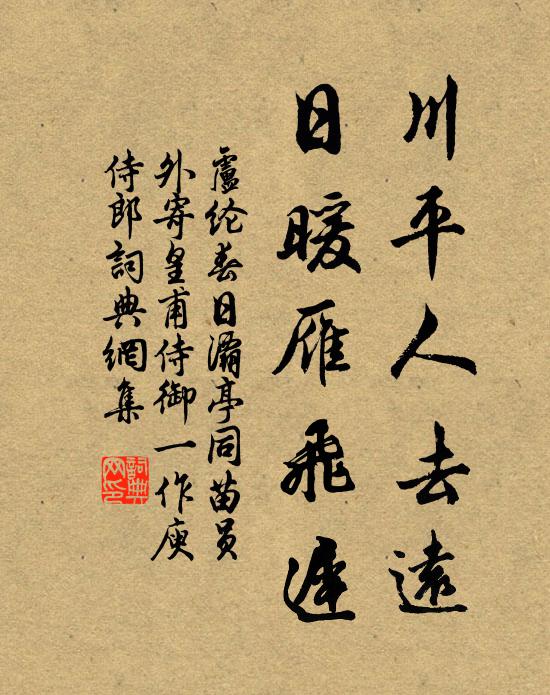 川平人去遠
日暖雁飛遲
盧纶春日灞亭同苗员
外寄皇甫侍御一作庾
侍郎詞典網集
詞典
网印